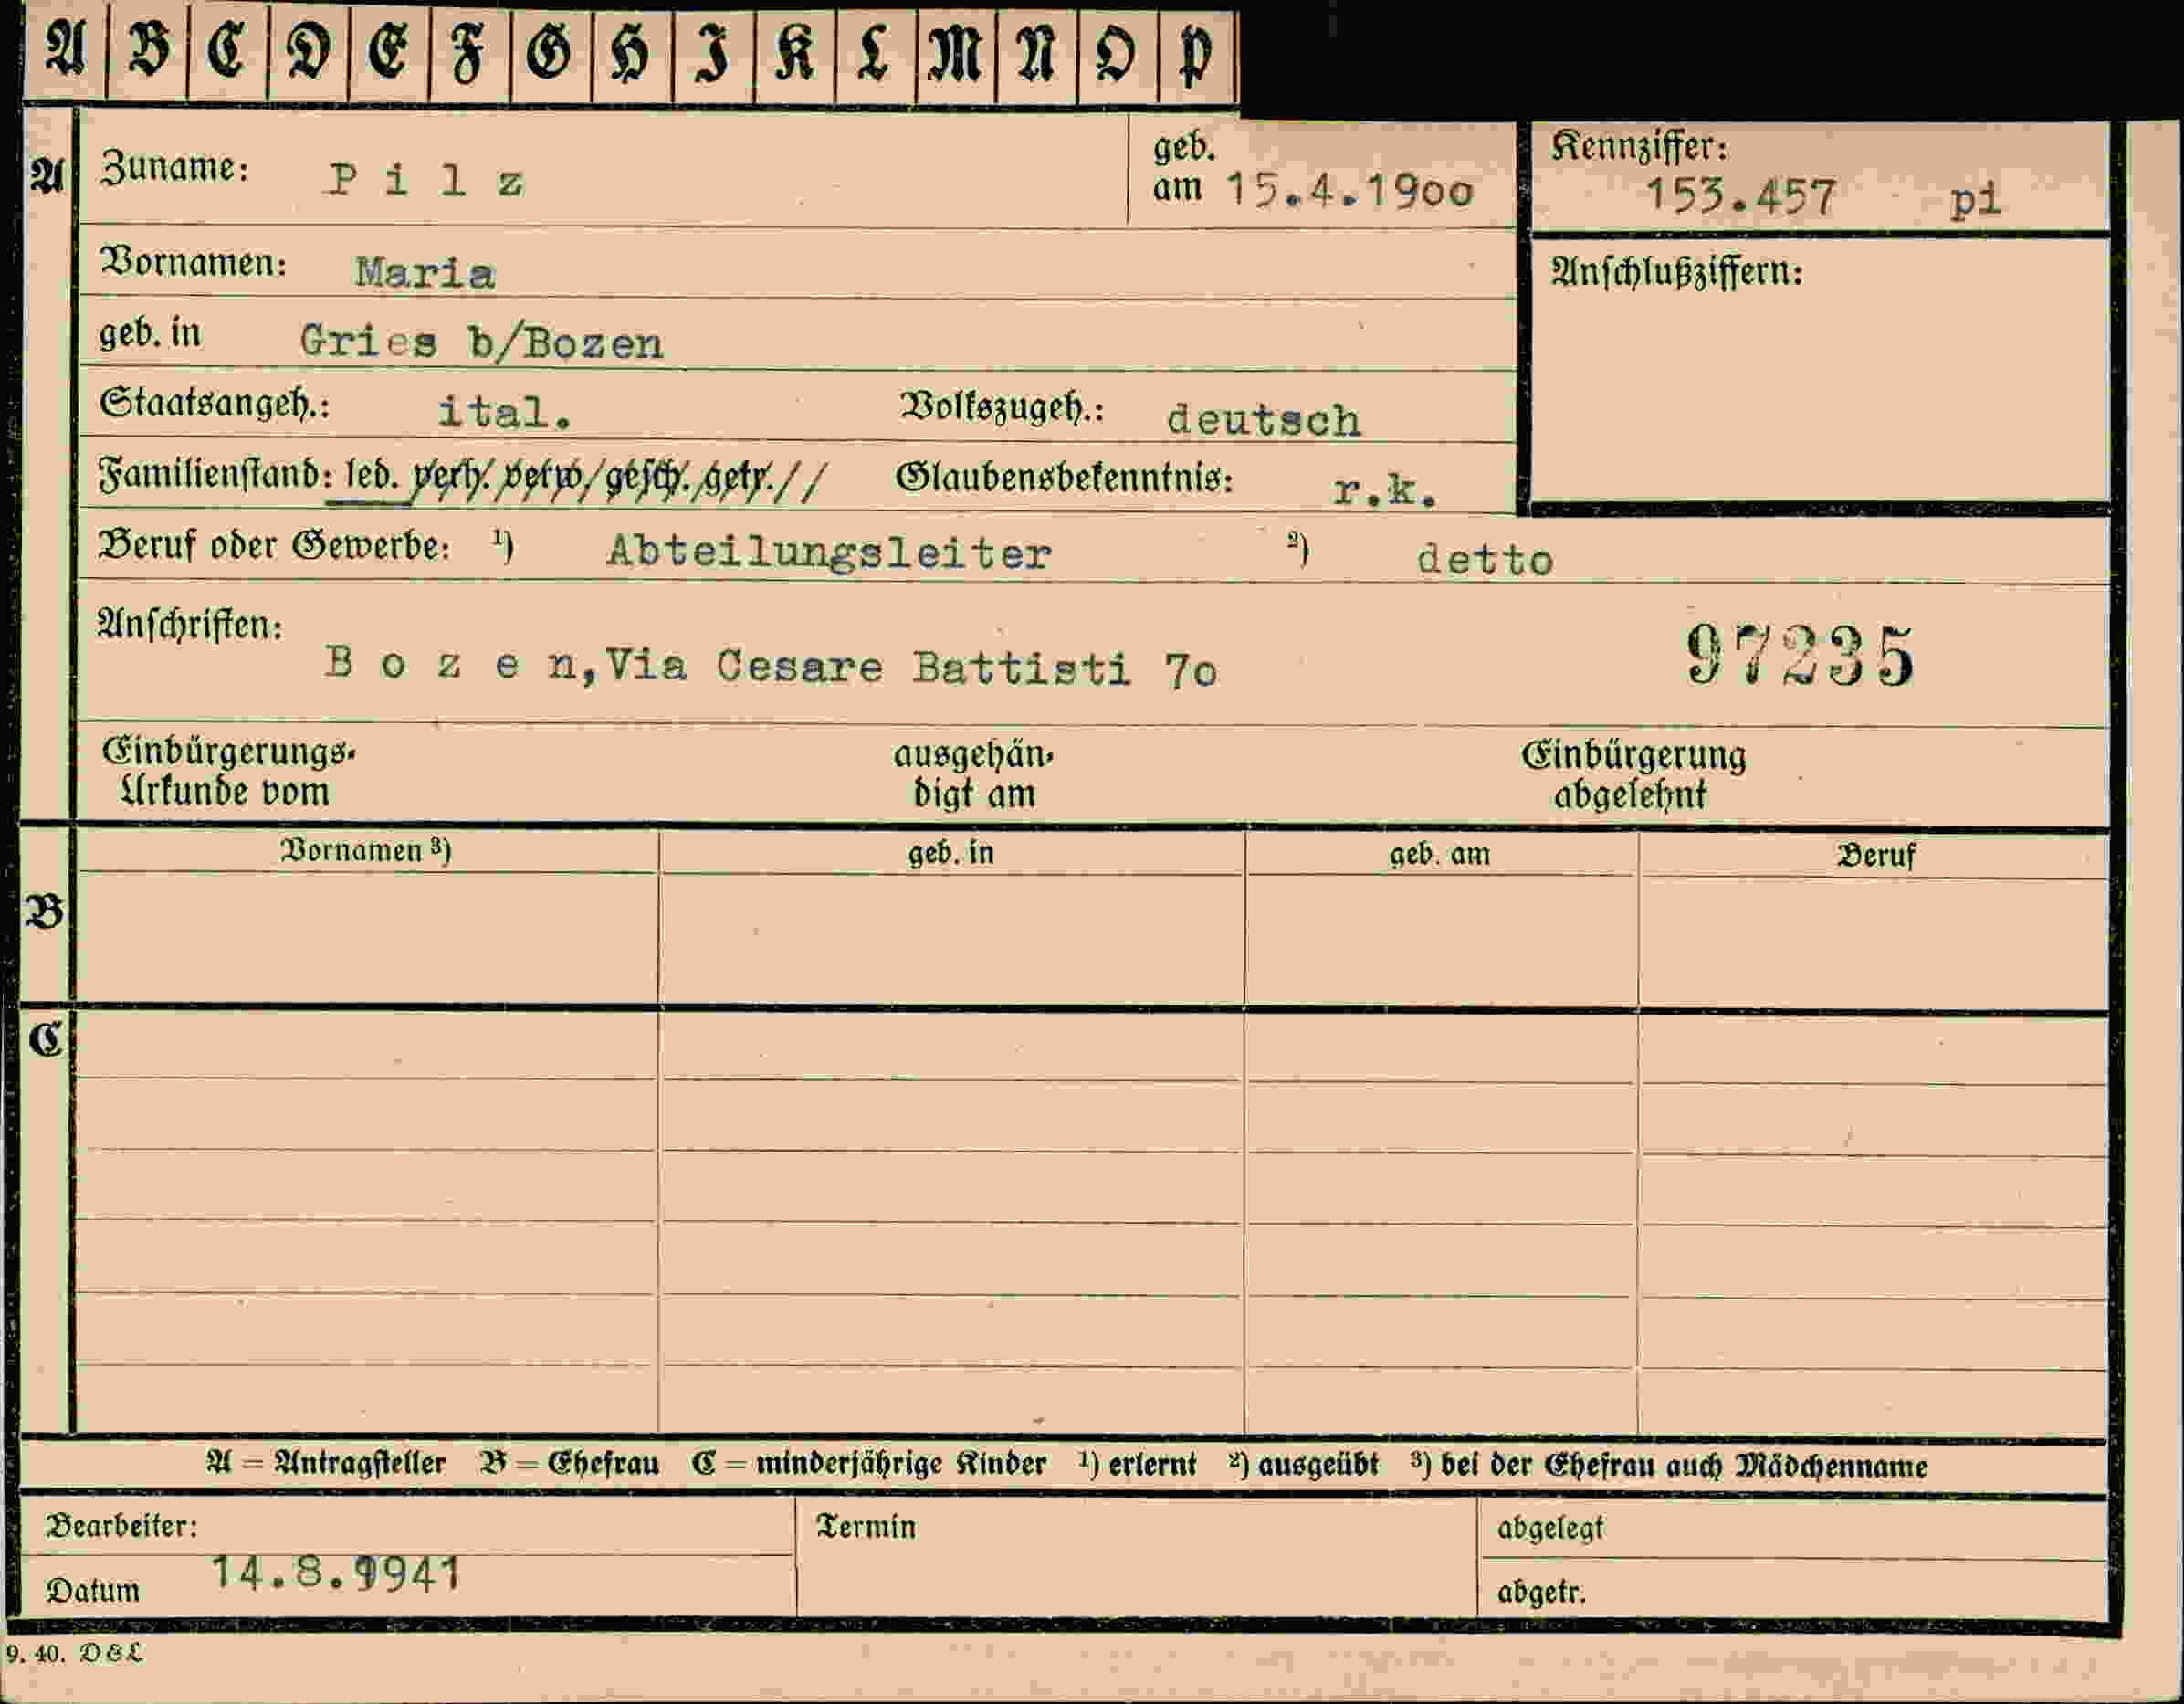 A B C D E F G H I K L M N O P
A Zuname: P i l z geb. am 15.4.19oo Kennziffer: 153.457 pi
Vornamen: Maria Anschlußziffern:
geb. in Gries b/Bozen
Staatsangeh.: ital. Volkszugeh.: deutsch
Familienstand: led. verh. verw. gesch. getr. // Glaubensbekenntnis: r.k.
Beruf oder Gewerbe: ¹) Abteilungsleiter ²) detto
Anschriften: 97235
B o z e n,Via Cesare Battisti 7o
Einbürgerungs- ausgehän- Einbürgerung
Urkunde vom digt am abgelehnt
Vornamen ³) geb. in geb. am Beruf
B
C
A = Antragsteller B = Ehefrau C = minderjährige Kinder ¹) erlernt ²) ausgeübt ³) bei der Ehefrau auch Mädchenname
Bearbeiter: Termin abgelegt
Datum 14.8.1941 abgetr.
9. 40. D & L